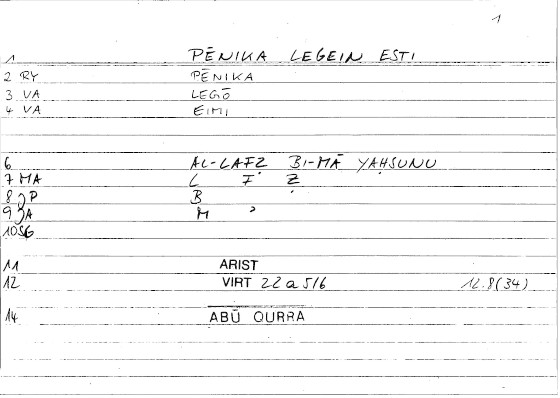 1
1 PĒNIKA LEGEIN ESTI
2 RY PĒNIKA
3 VA LEGŌ
4 VA EIMI
6 AL-LAFẒ BI-MĀ YAḤSUNU
7 MA L F Ẓ
8 JP B
9 JA M ʾ
10 SG
11 ARIST
12 VIRT 22 a 5/6 12.8(34)
14 ABŪ QURRA